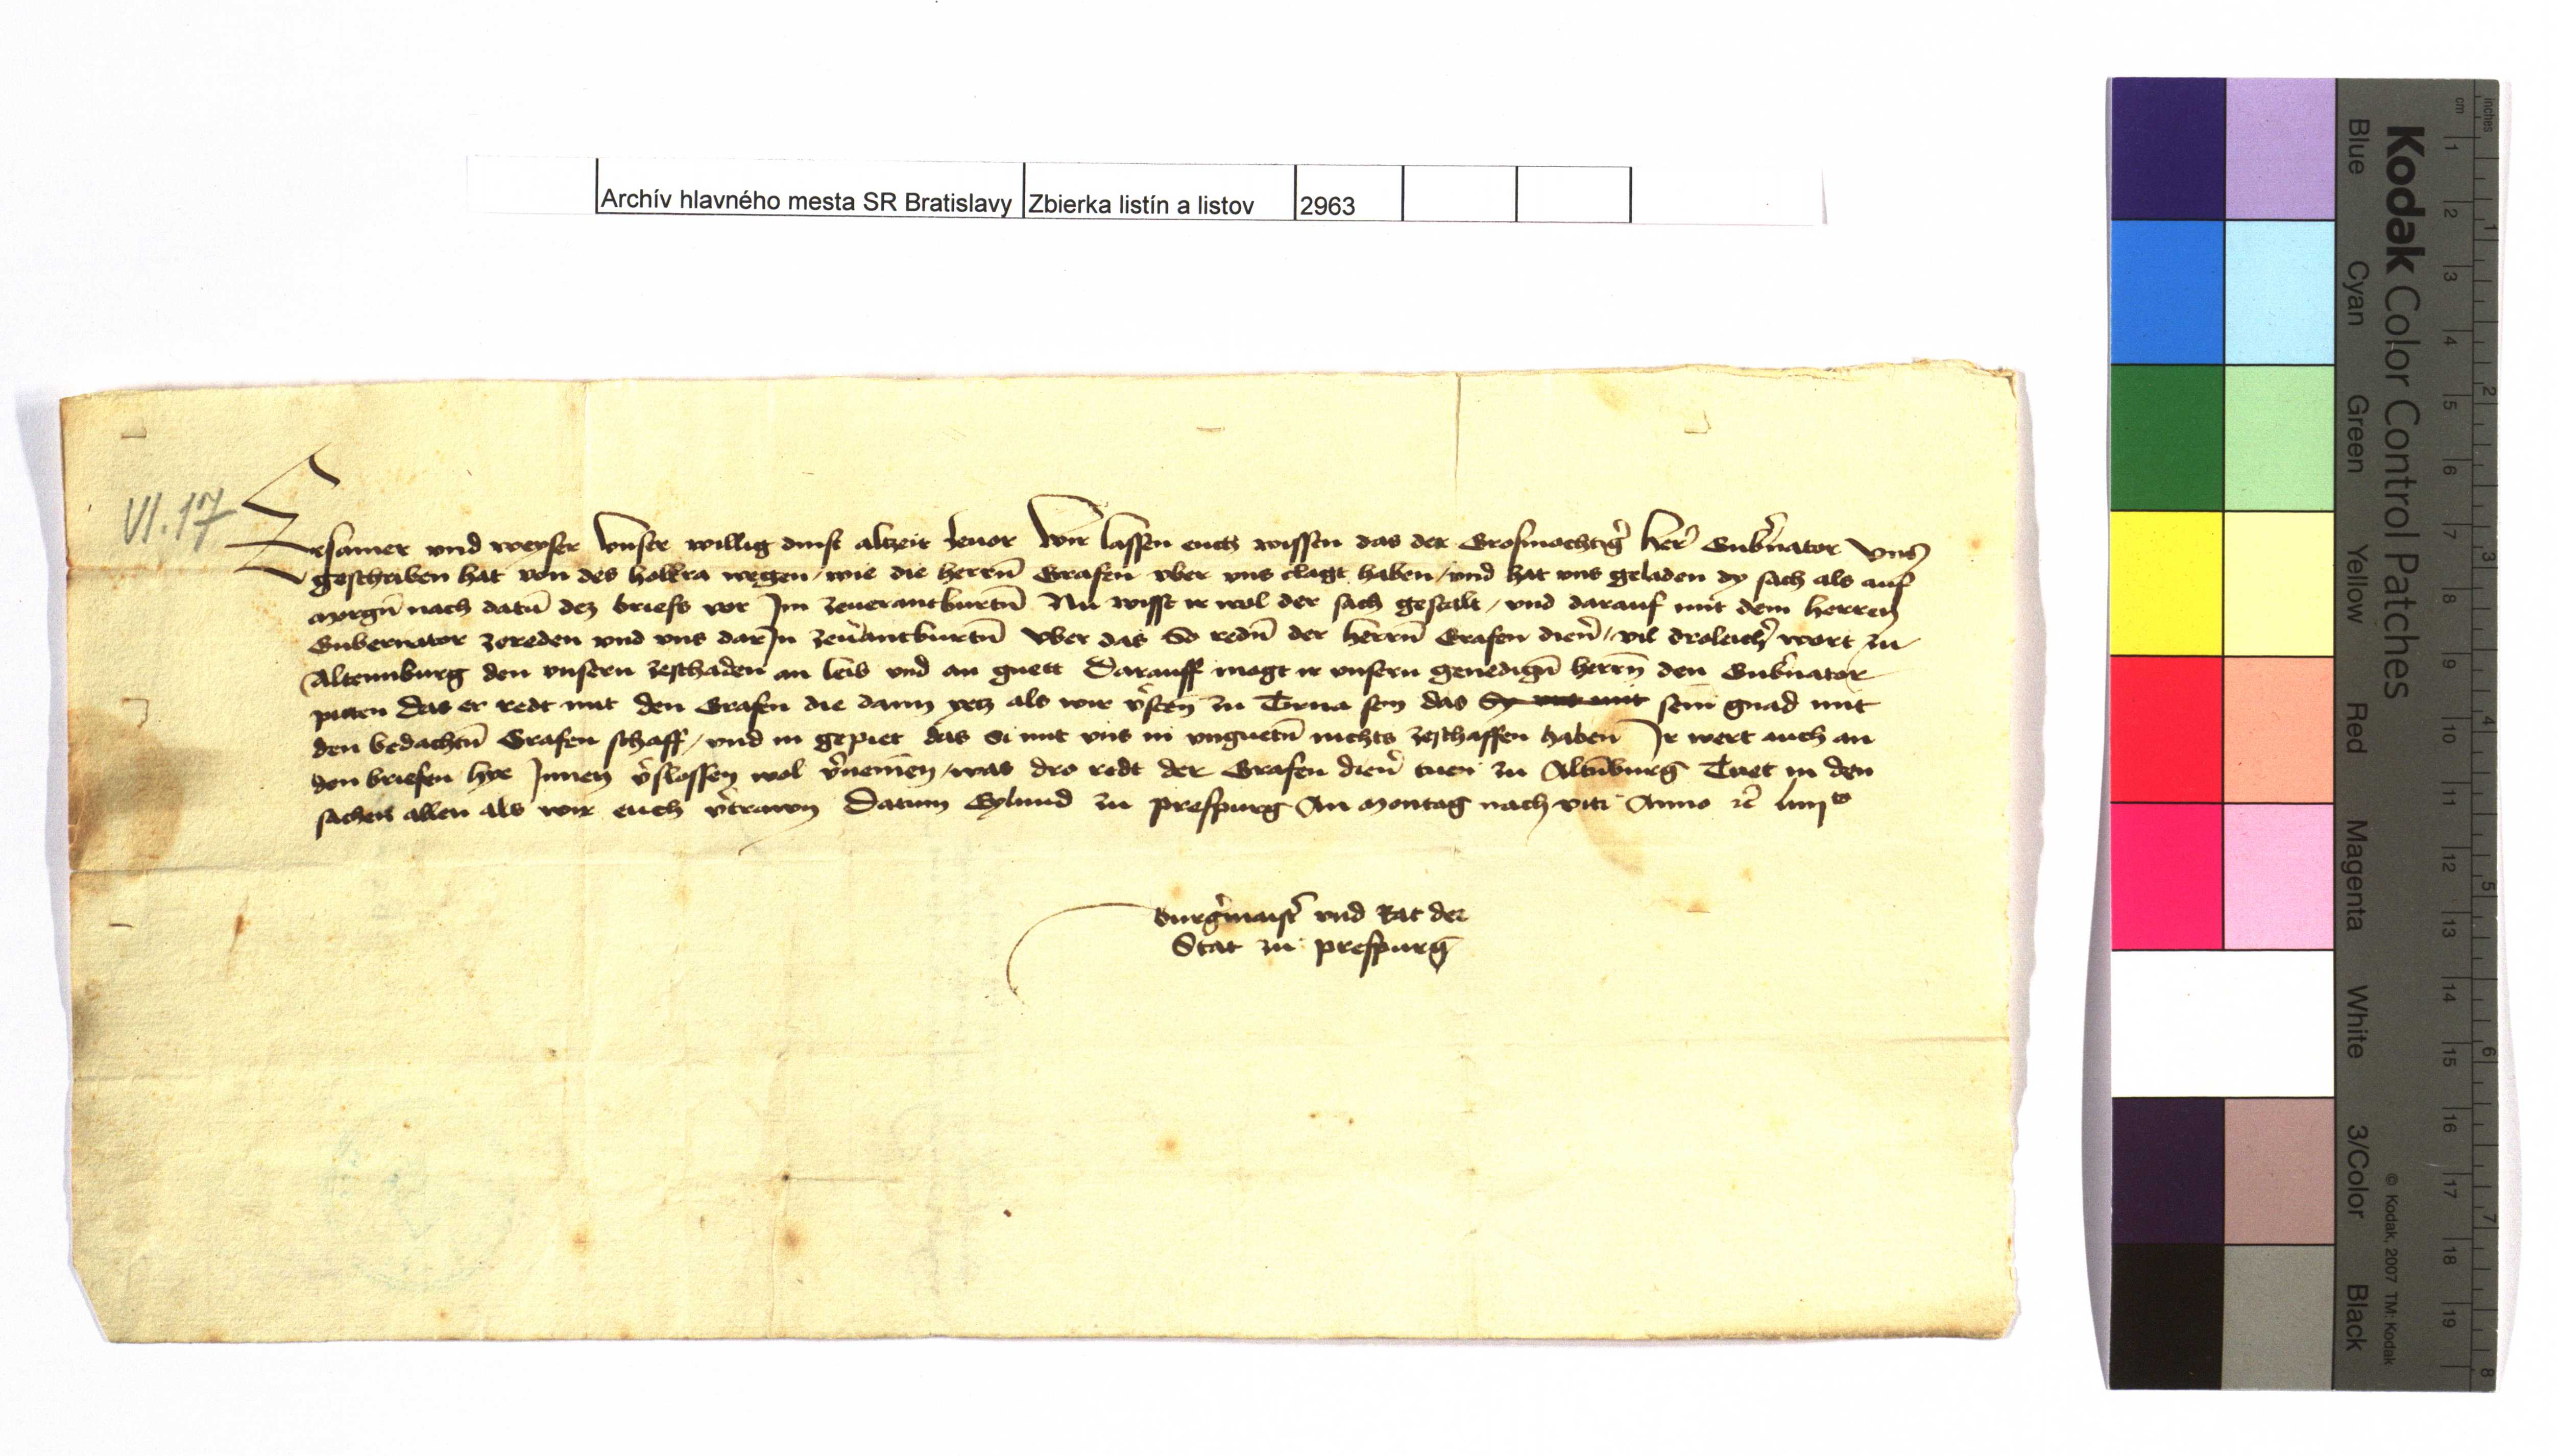 Archív hlavného mesta SR Bratislavy Zbierka listín a listov 2963
VI. 17
Ersamer vnd weyser Vnser willig dinst altzeit zeuor Wir lassen euch wissen das der Grosmochtig̉ Her̉ Gub̉nator vns
geschriben hat von des holkra wegen / wie die herrn̄ Grafen vber vns clagt haben / vnd hat vns geladen dy sach als auf
morgn̄ nach datū dez briefs vor Im zeuerantburtn̄ Nu wisst ir wol der sach gestalt / vnd darauf mit dem herren
Gubernator zereden vnd vns darIn zeu̓antburtn̄ Vber das So redn̄ der herrn̄ Grafen dien̉ / vil droleich̉ wort zu
Altemburg den vnsern zeschaden an leib vnd an guett Darauff mogt ir vnsern genedign̄ herrn̄ den Gub̉nator
pitten Das er redt mit den Grafen die dann yetz als wir v̉sten̄ zu Tirna sein das sein gnad mit
den bedachtn̄ Grafen schaff / vnd in gepiet das si mit vns in vnguetn̄ nichts zeschaffen haben Ir wert auch an
den briefen hye Innen v̉slossen wol v̉nemen / was dro redt der Grafen dien̉ tuen zu Altn̄burg Tuet in den
sachen allen als wir euch v̉trawn Datum Eylund zu prespurg An Montag nach viti Anno ꝛc̄ liiij^to
Burg̉maist̉ vnd Rat der
Stat zu prespurg
Kodak Color Control Patches
Blue Cyan Green Yellow Red Magenta White 3/Color Black
© Kodak, 2007 TM: Kodak
inches 1 2 3 4 5 6 7 8
cm 1 2 3 4 5 6 7 8 9 10 11 12 13 14 15 16 17 18 19